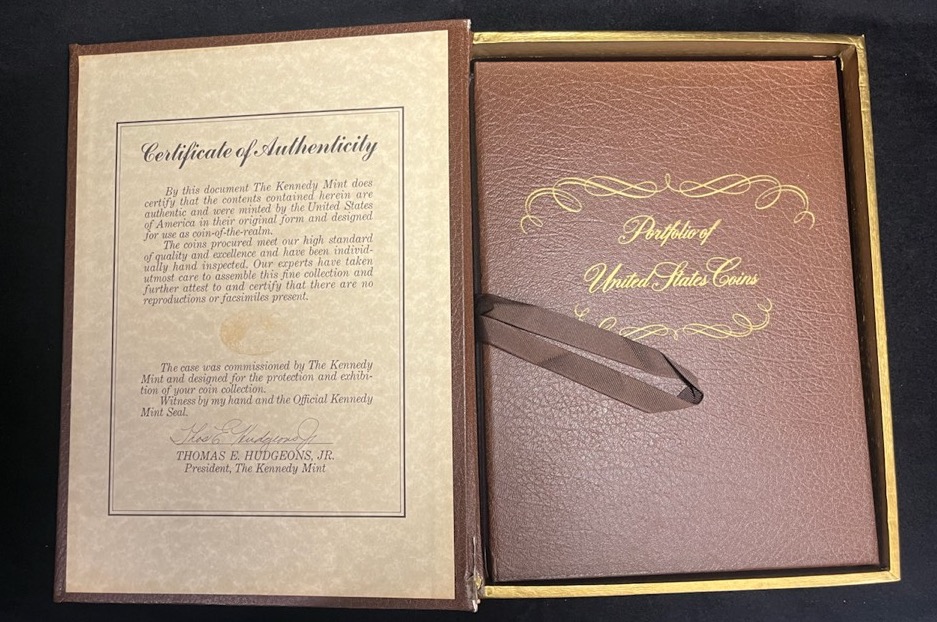 Certificate of Authenticity
By this document The Kennedy Mint does
certify that the contents contained herein are
authentic and were minted by the United States
of America in their original form and designed
for use as coin-of-the-realm.
The coins procured meet our high standard
of quality and excellence and have been individ-
ually hand inspected. Our experts have taken
utmost care to assemble this fine collection and
further attest to and certify that there are no
reproductions or facsimiles present.
The case was commissioned by The Kennedy
Mint and designed for the protection and exhibi-
tion of your coin collection.
Witness by my hand and the Official Kennedy
Mint Seal.
Thos E. Hudgeons Jr
THOMAS E. HUDGEONS, JR.
President, The Kennedy Mint
Portfolio of
United States Coins